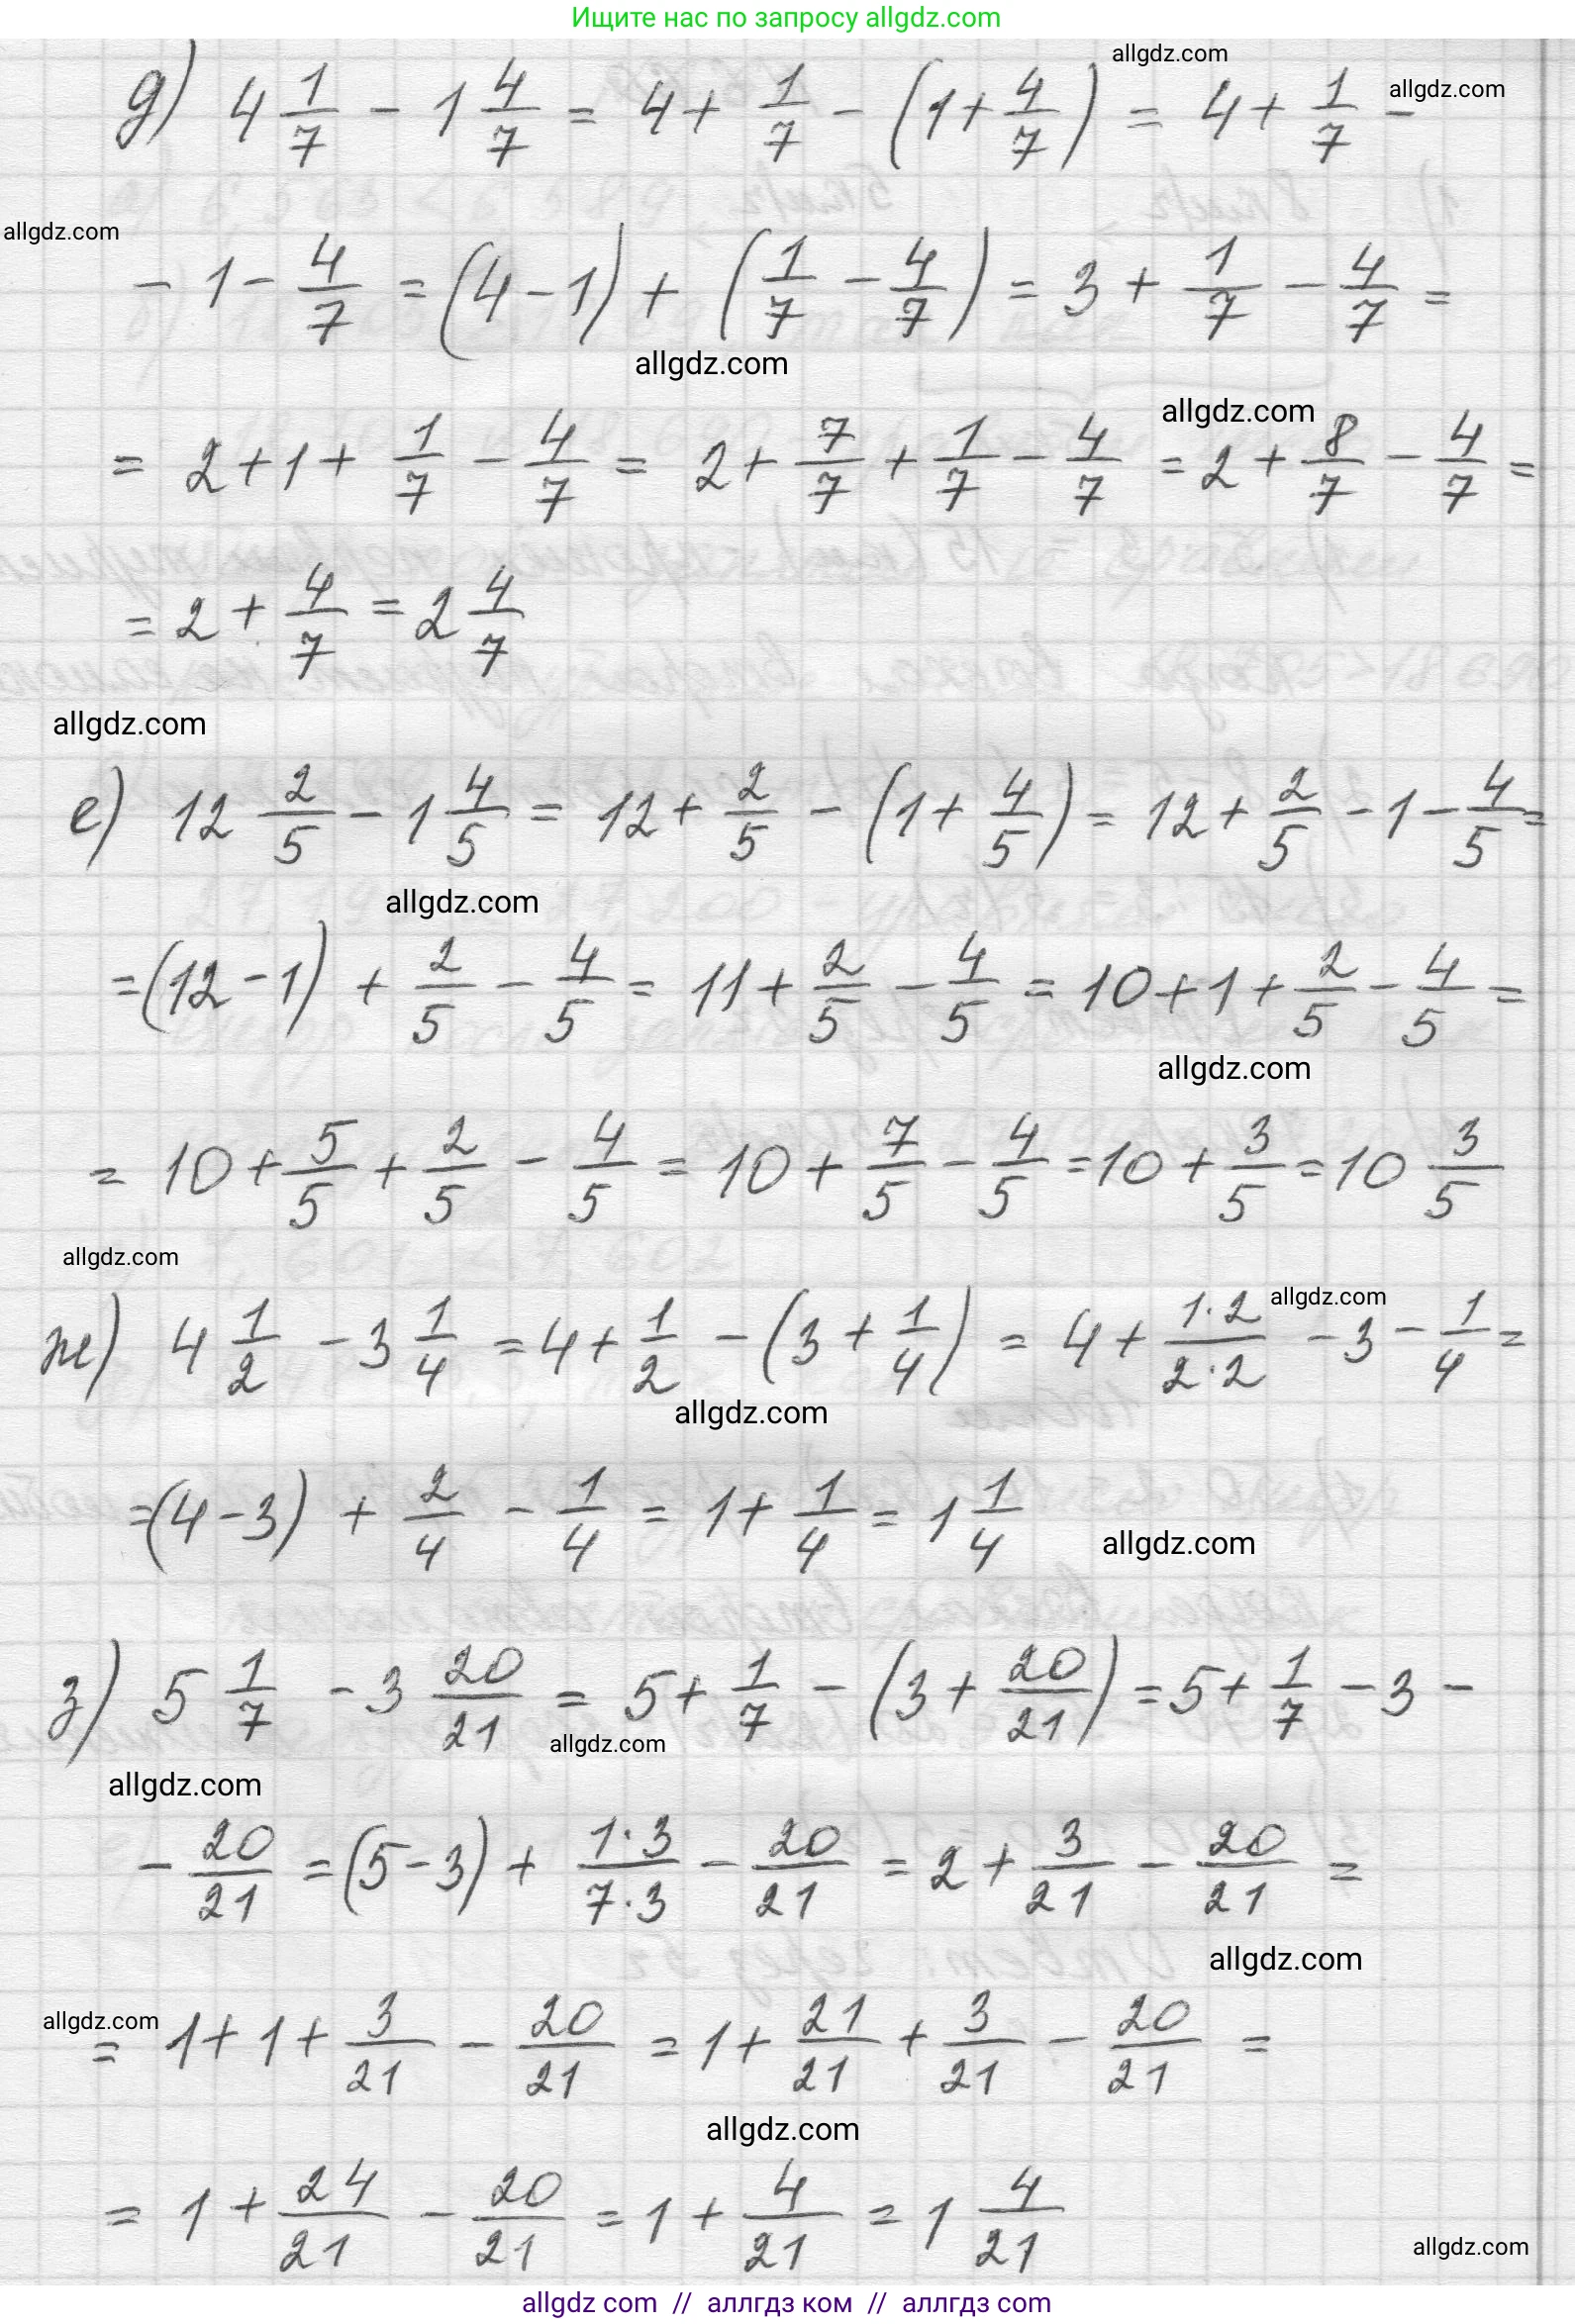 Ищите нас по запросу allgdz.com
allgdz.com
д) 4 1/7 - 1 4/7 = 4 + 1/7 - (1 + 4/7) = 4 + 1/7 -
allgdz.com
allgdz.com
- 1 - 4/7 = (4 - 1) + (1/7 - 4/7) = 3 + 1/7 - 4/7 =
allgdz.com
allgdz.com
= 2 + 1 + 1/7 - 4/7 = 2 + 7/7 + 1/7 - 4/7 = 2 + 8/7 - 4/7 =
= 2 + 4/7 = 2 4/7
allgdz.com
е) 12 2/5 - 1 4/5 = 12 + 2/5 - (1 + 4/5) = 12 + 2/5 - 1 - 4/5 =
allgdz.com
= (12 - 1) + 2/5 - 4/5 = 11 + 2/5 - 4/5 = 10 + 1 + 2/5 - 4/5 =
allgdz.com
= 10 + 5/5 + 2/5 - 4/5 = 10 + 7/5 - 4/5 = 10 + 3/5 = 10 3/5
allgdz.com
allgdz.com
ж) 4 1/2 - 3 1/4 = 4 + 1/2 - (3 + 1/4) = 4 + 1·2/2·2 - 3 - 1/4 =
allgdz.com
= (4 - 3) + 2/4 - 1/4 = 1 + 1/4 = 1 1/4
allgdz.com
з) 5 1/7 - 3 20/21 = 5 + 1/7 - (3 + 20/21) = 5 + 1/7 - 3 -
allgdz.com
allgdz.com
- 20/21 = (5 - 3) + 1·3/7·3 - 20/21 = 2 + 3/21 - 20/21 =
allgdz.com
allgdz.com
= 1 + 1 + 3/21 - 20/21 = 1 + 21/21 + 3/21 - 20/21 =
allgdz.com
= 1 + 24/21 - 20/21 = 1 + 4/21 = 1 4/21
allgdz.com
allgdz com // аллгдз ком // аллгдз com